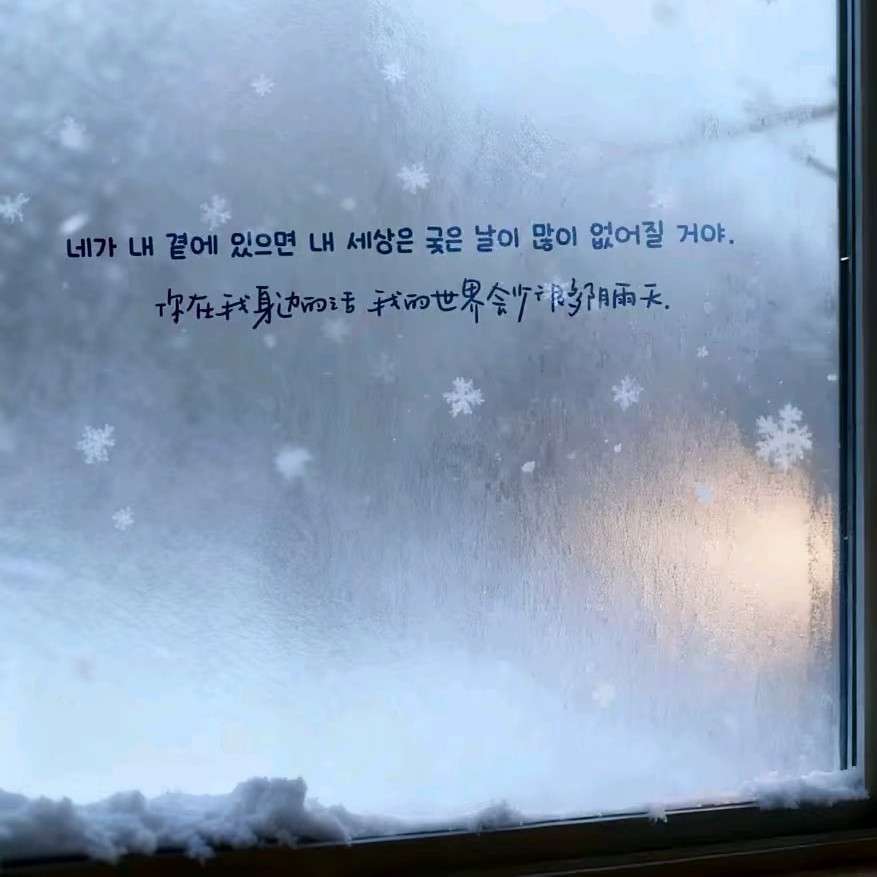 네가 내 곁에 있으면 내 세상은 궂은 날이 많이 없어질 거야.
你在我身边的话 我的世界会少很多阴雨天.